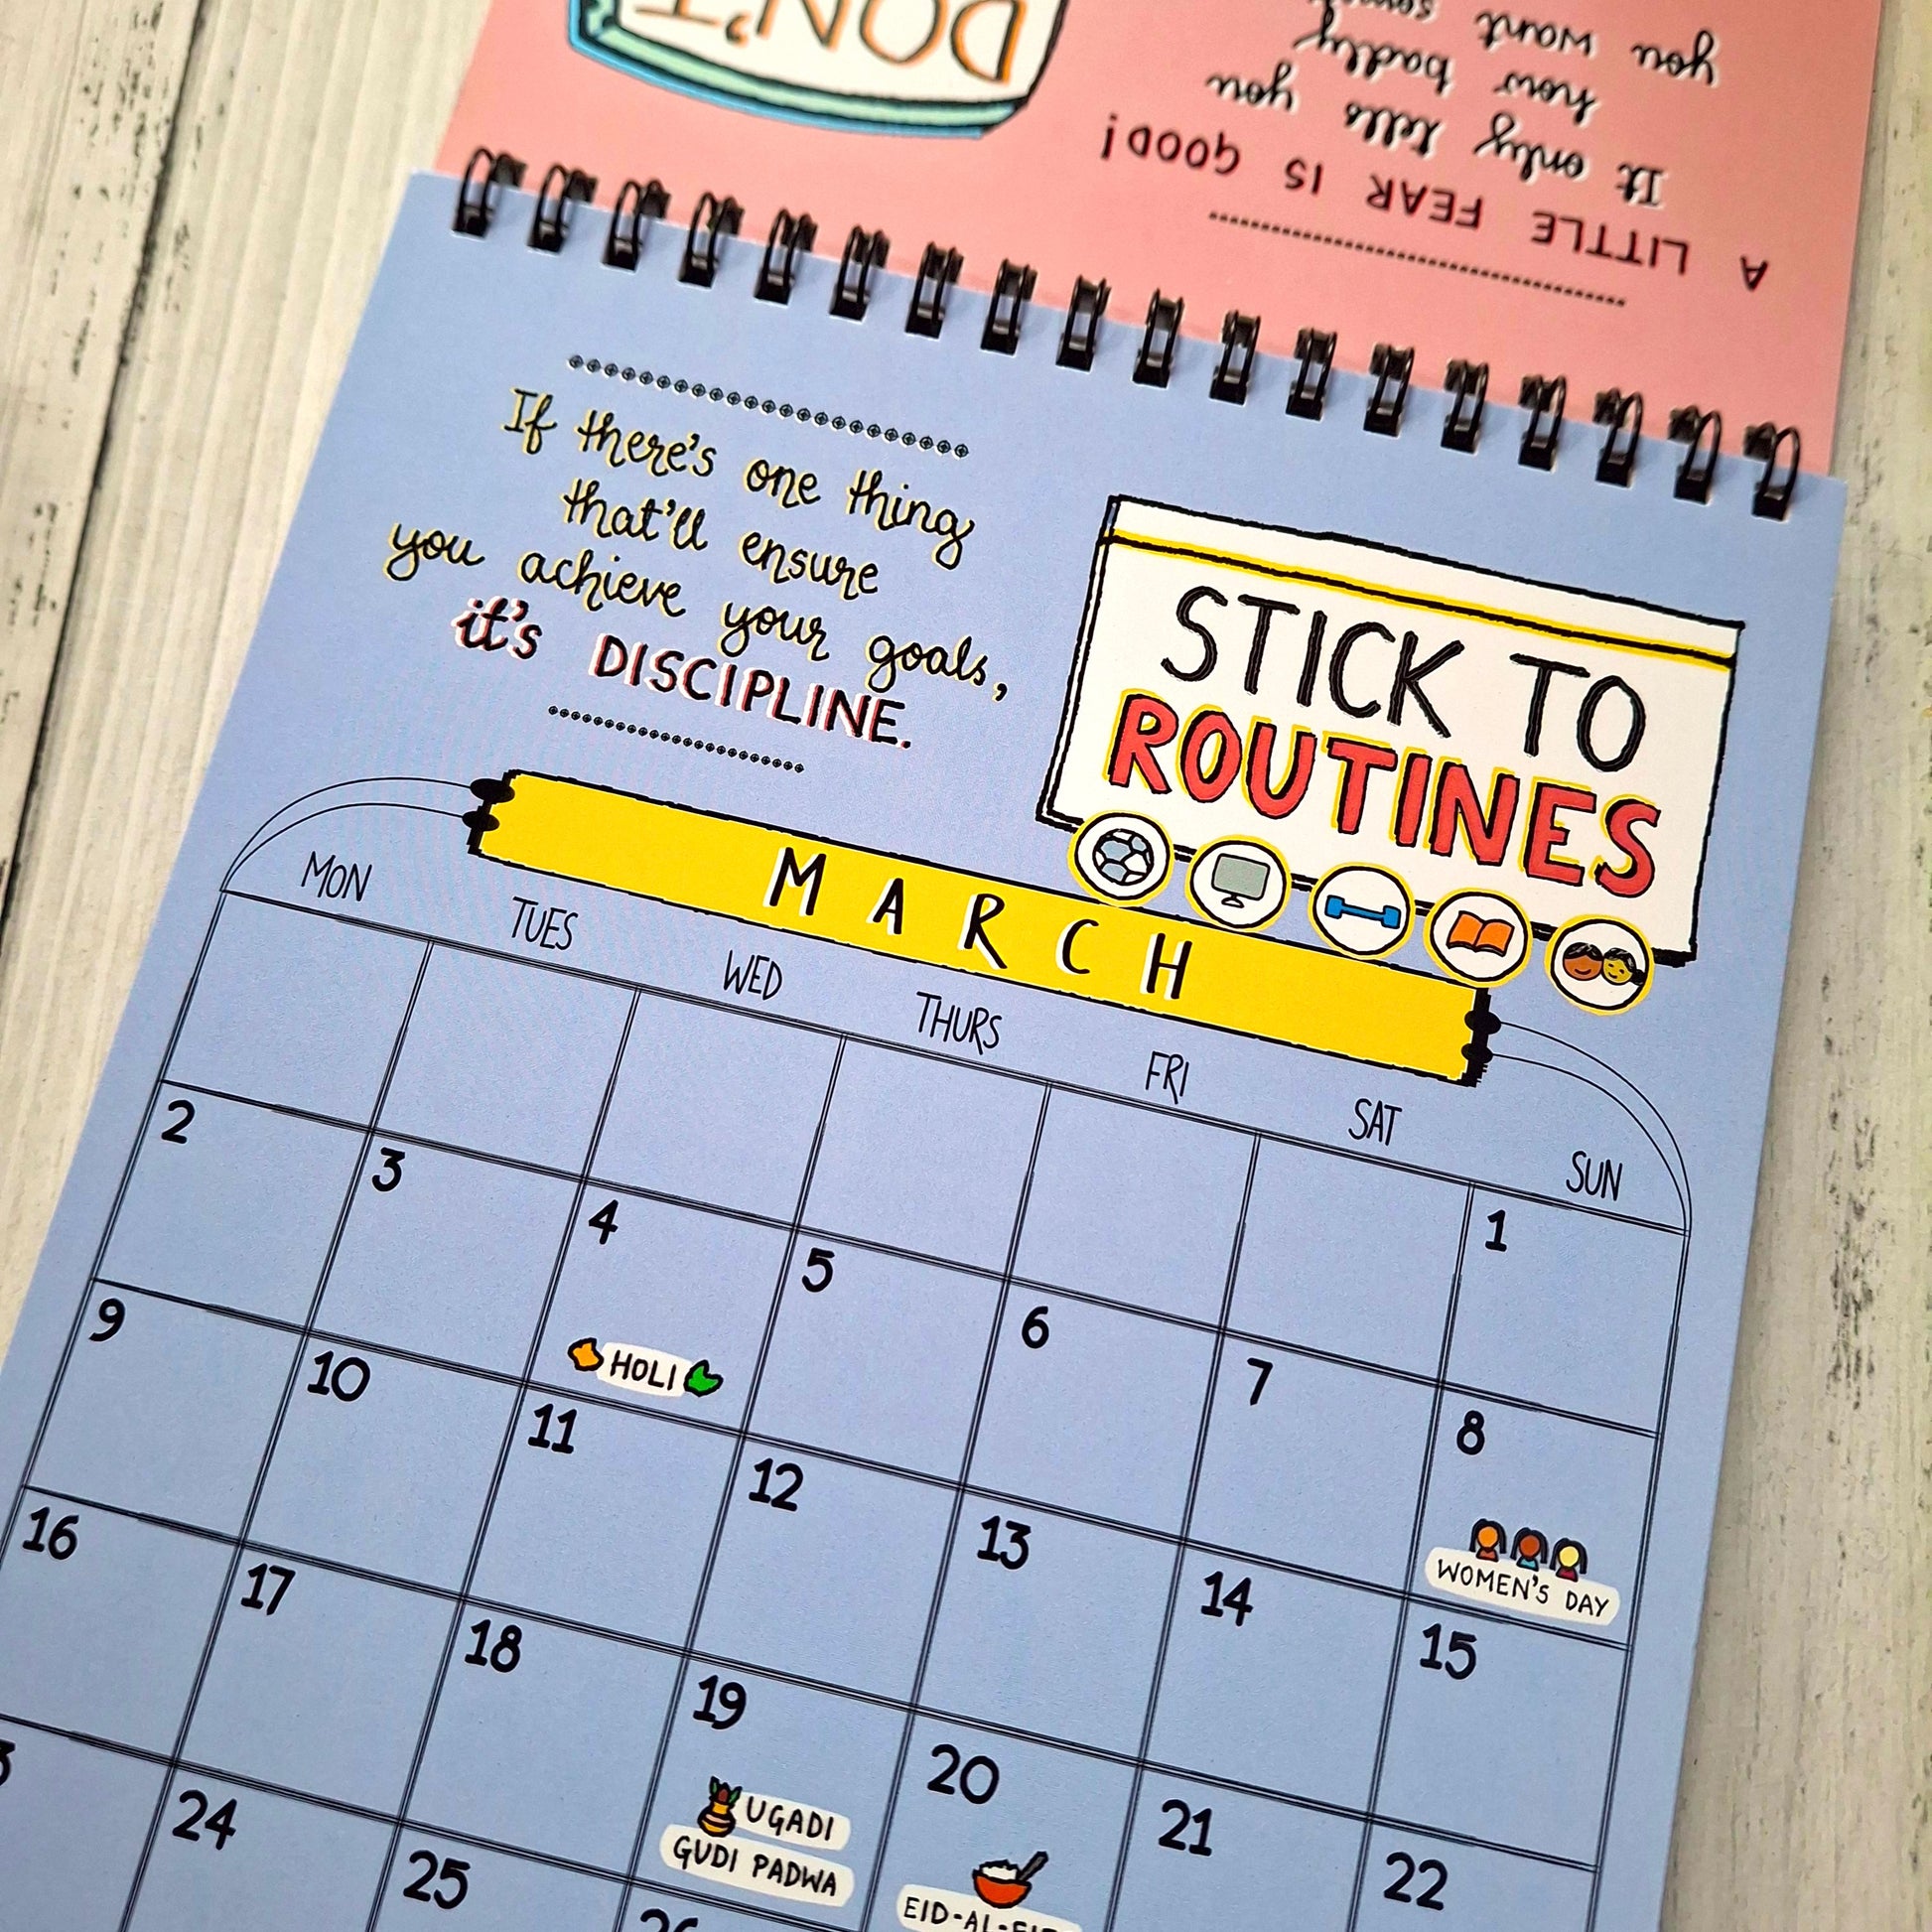 DON'T
A LITTLE FEAR IS GOOD!
It only tells you
how badly
you want
If there's one thing
that'll ensure
you achieve your goals,
it's DISCIPLINE.
STICK TO
ROUTINES
MARCH
MON TUES WED THURS FRI SAT SUN
1
2 3 4 5 6 7 8
HOLI
WOMEN'S DAY
9 10 11 12 13 14 15
16 17 18 19 20 21 22
UGADI
GUDI PADWA
24 25